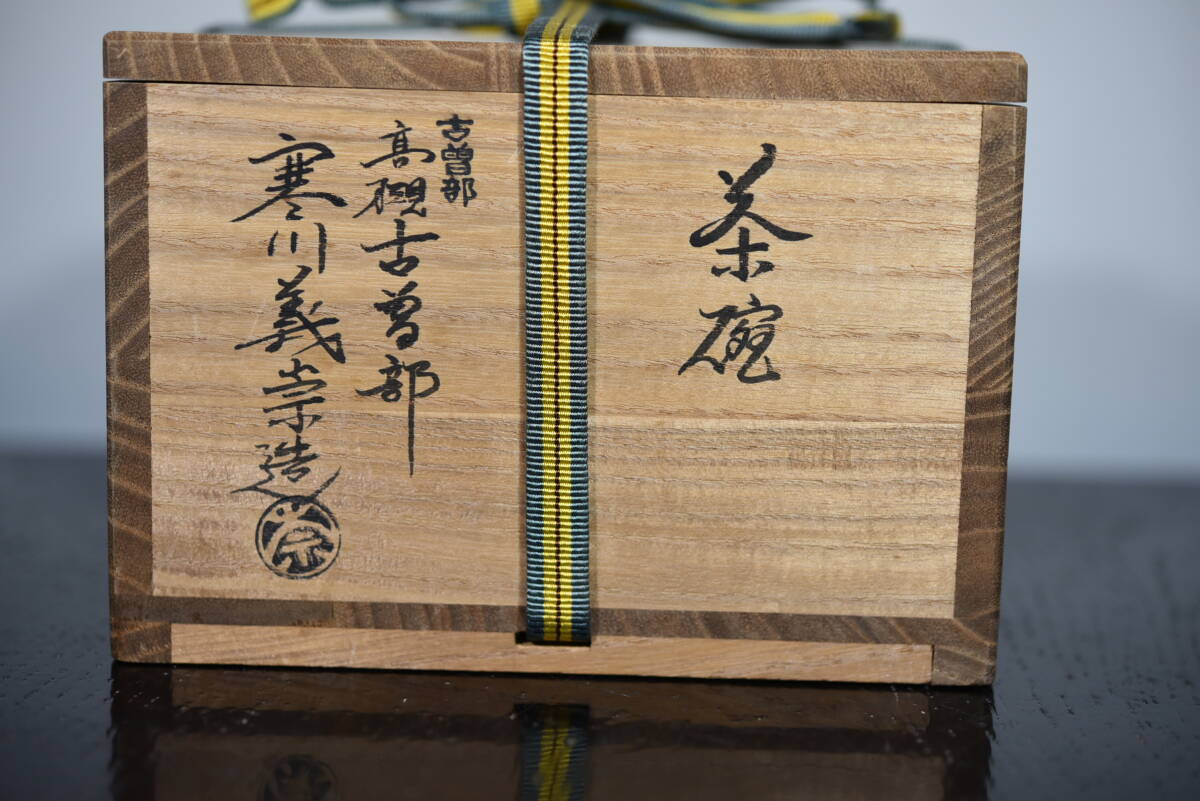 茶碗
古曽部
高槻古曽部
寒川義崇造
崇